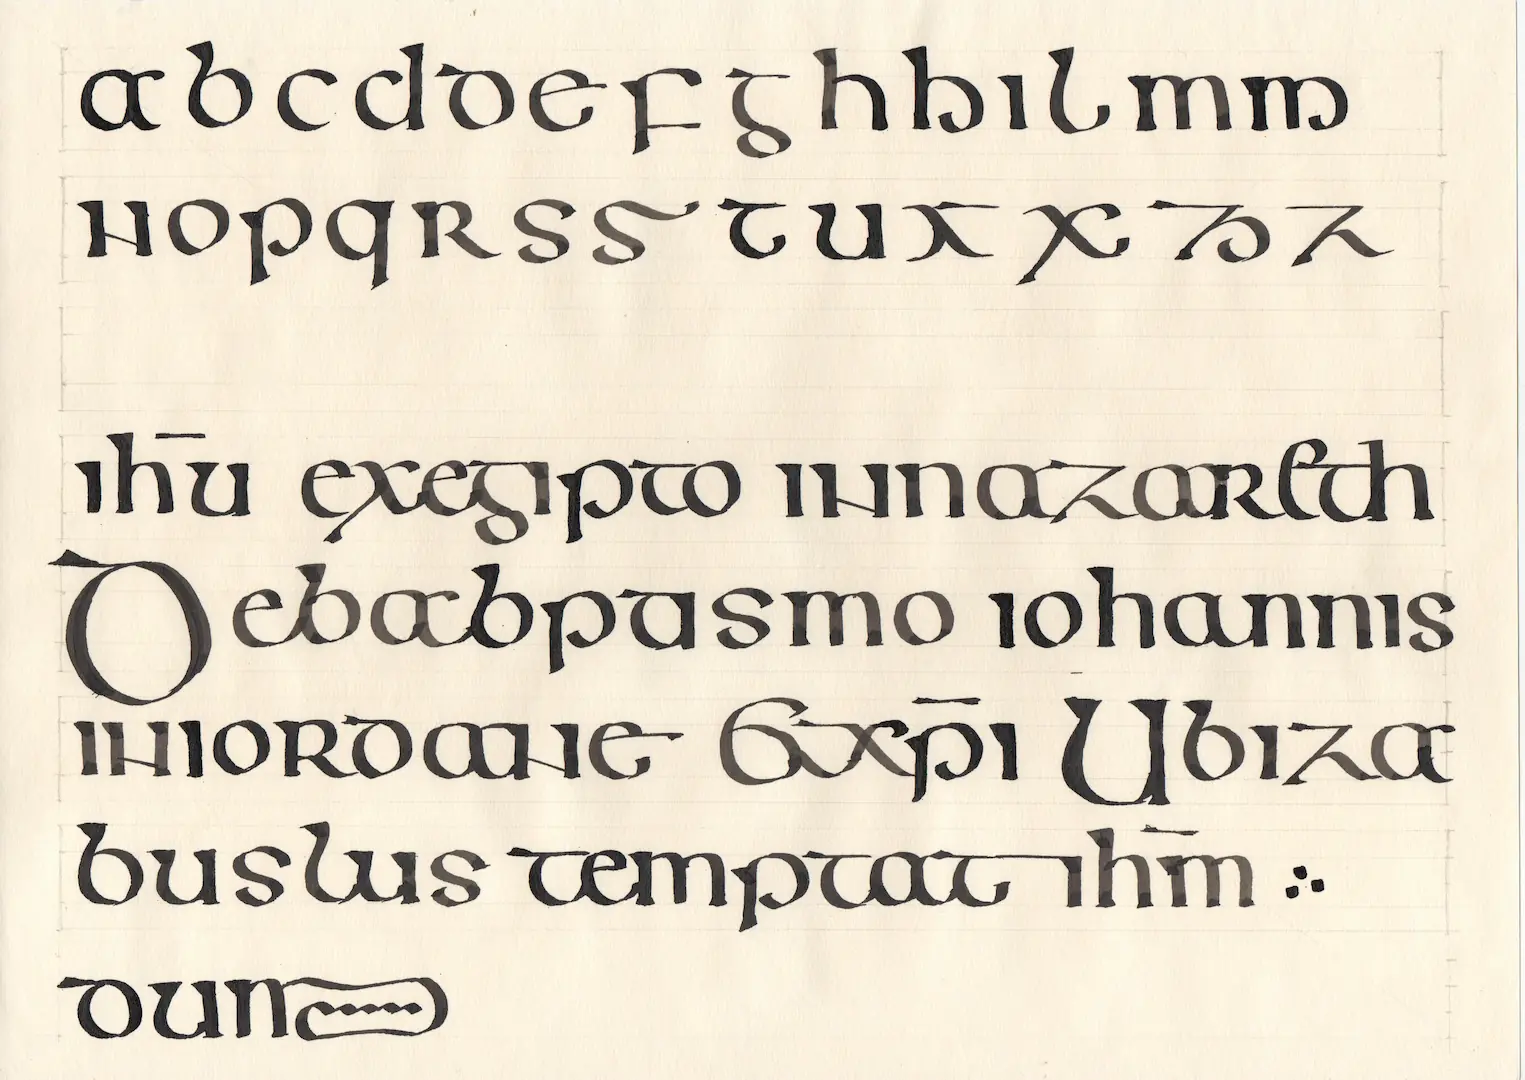 a b c d d e f g h h i l m m
n o p q r s s t u x x z z
ih̄u exegipto innazareth
Debabptismo iohannis
iniordane Etxp̄i Ubiza
buslus temptat ih̄m ჻
dun